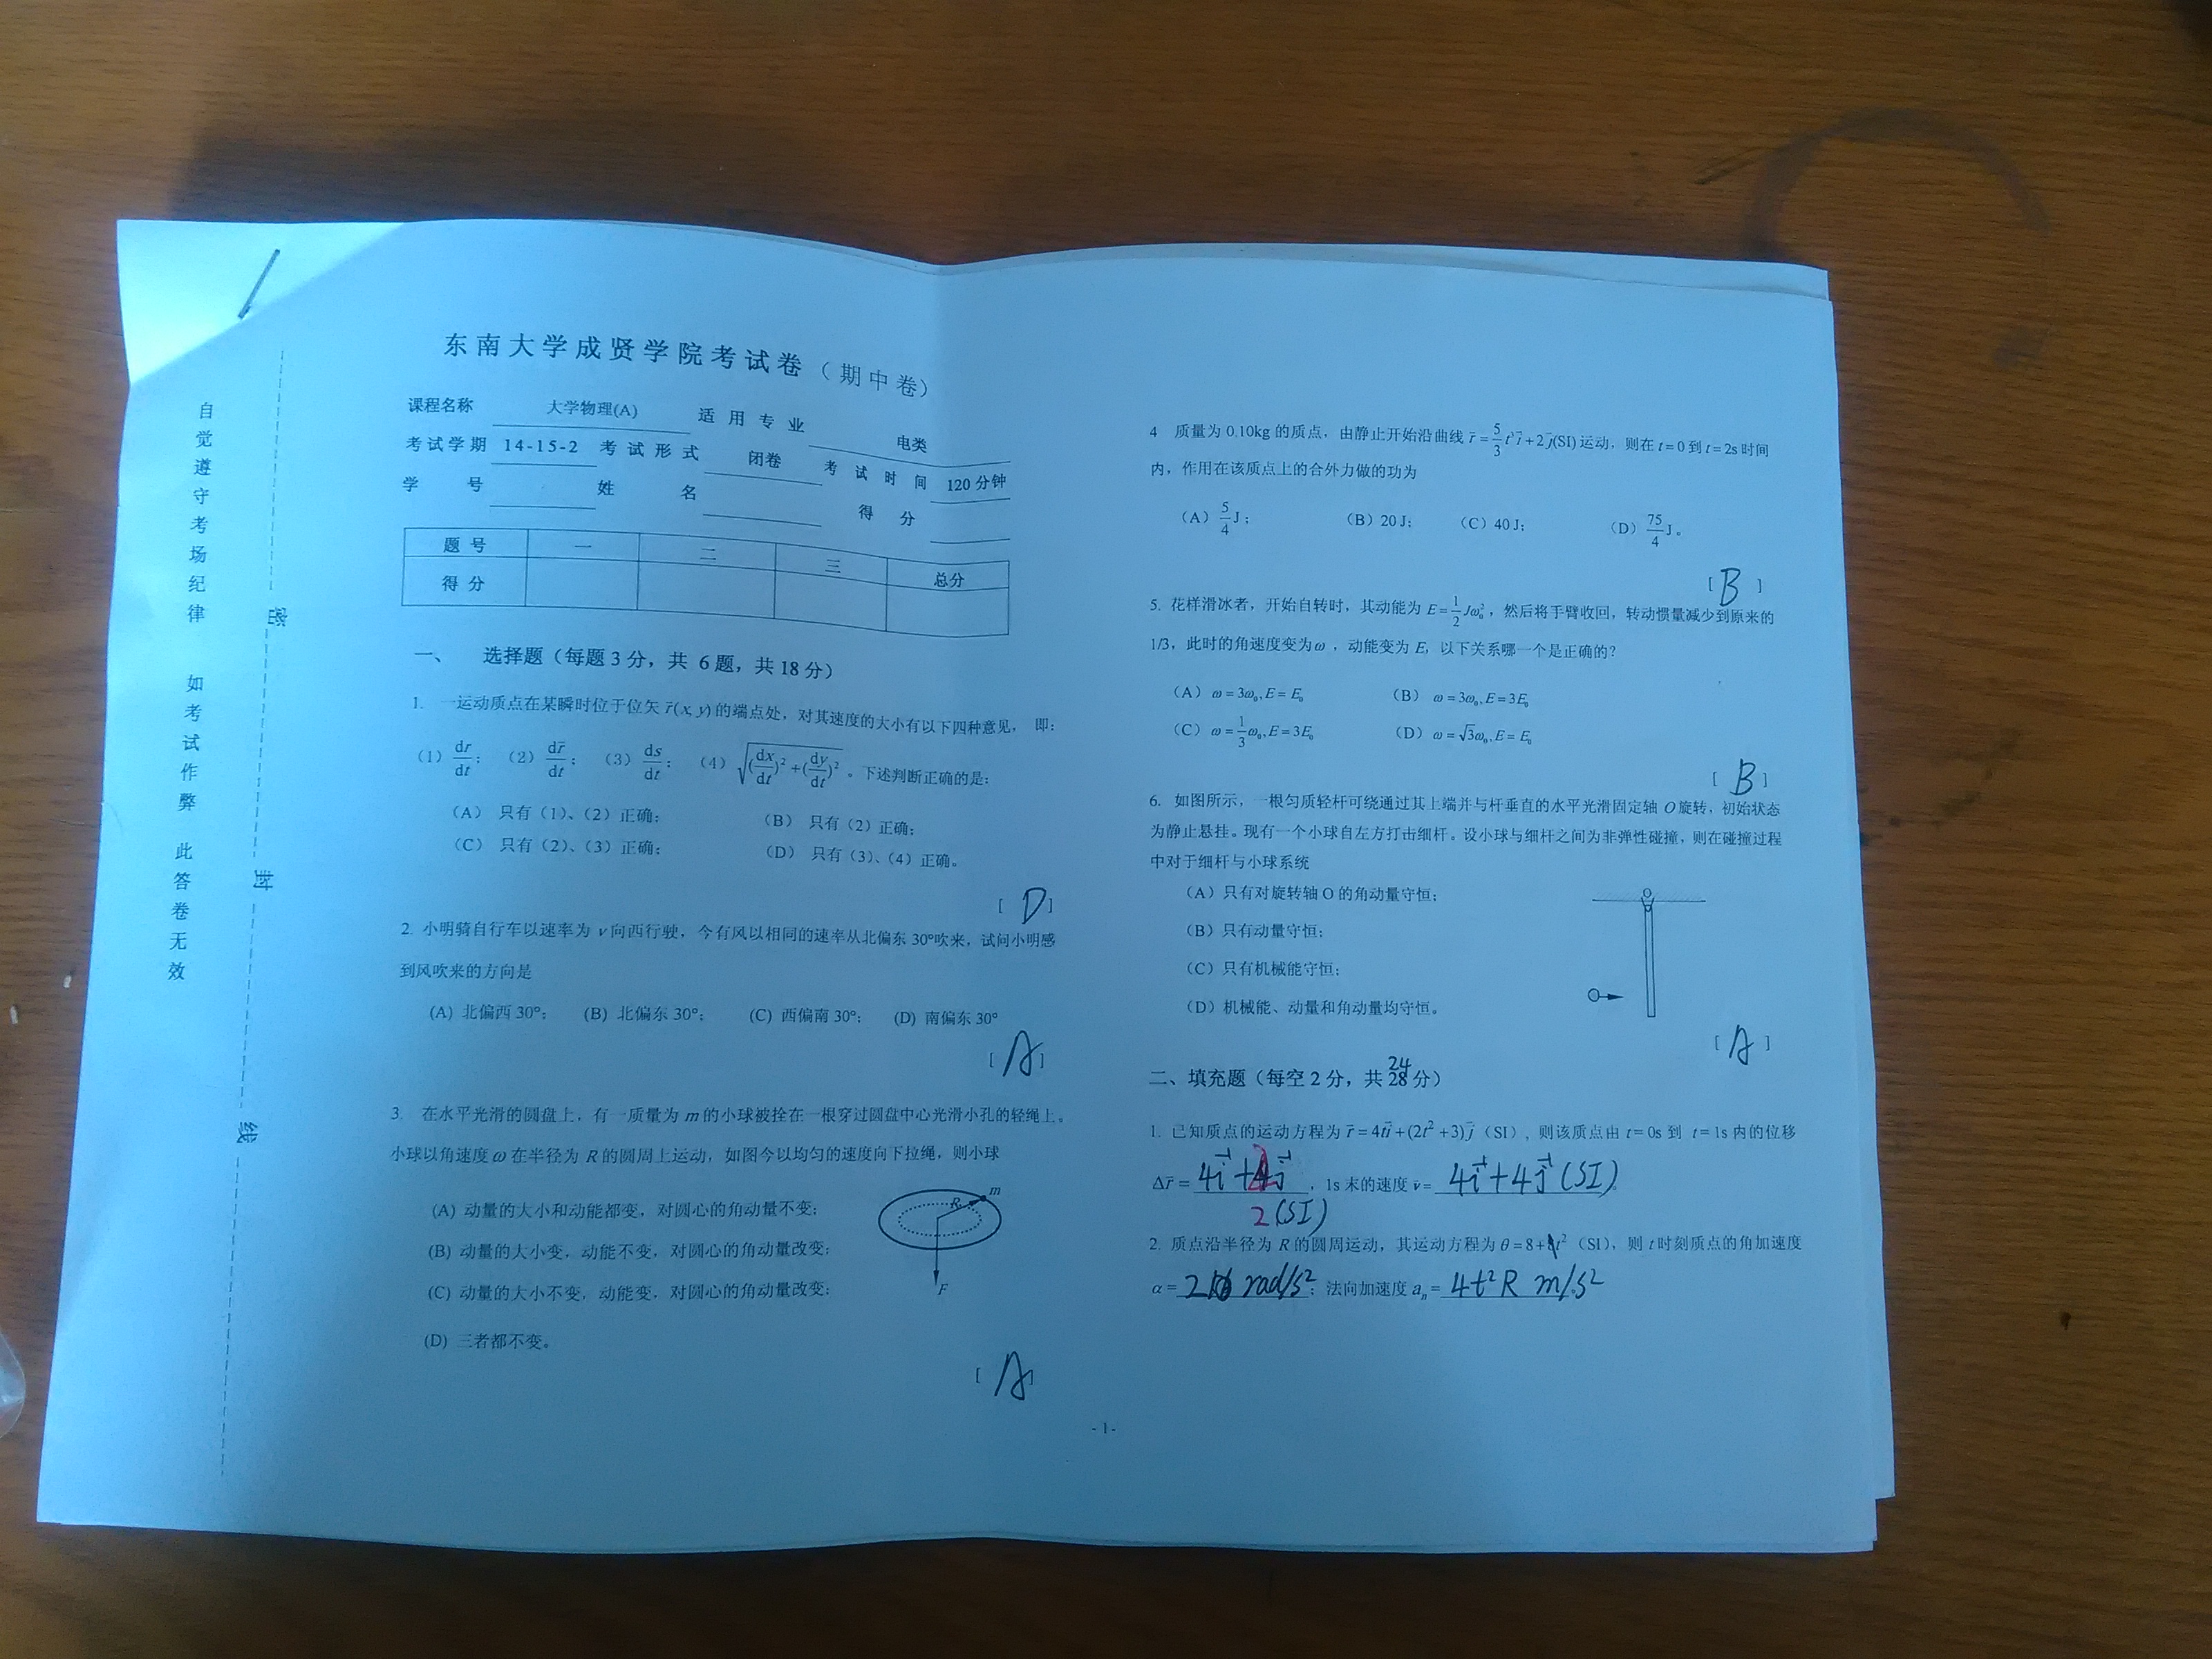 东南大学成贤学院考试卷（期中卷）
课程名称 大学物理(A) 适用专业 电类
考试学期 14-15-2 考试形式 闭卷 考试时间 120分钟
学号 姓名 得分
题号 一 二 三 总分
得分
自觉遵守考场纪律 如考试作弊 此答卷无效
密 封 线
一、 选择题（每题3分，共 6题，共18分）
1. 一运动质点在某瞬时位于位矢 r⃗(x, y) 的端点处，对其速度的大小有以下四种意见， 即：
（1）dr/dt； （2）dr⃗/dt； （3）ds/dt； （4）√((dx/dt)² + (dy/dt)²) 。下述判断正确的是：
（A） 只有（1）、（2）正确； （B） 只有（2）正确；
（C） 只有（2）、（3）正确； （D） 只有（3）、（4）正确。
[ D ]
2. 小明骑自行车以速率为 v 向西行驶，今有风以相同的速率从北偏东 30°吹来，试问小明感
到风吹来的方向是
(A) 北偏西 30°； (B) 北偏东 30°； (C) 西偏南 30°； (D) 南偏东 30°
[ A ]
3. 在水平光滑的圆盘上，有一质量为 m 的小球被拴在一根穿过圆盘中心光滑小孔的轻绳上。
小球以角速度 ω 在半径为 R 的圆周上运动，如图今以均匀的速度向下拉绳，则小球
(A) 动量的大小和动能都变，对圆心的角动量不变；
(B) 动量的大小变，动能不变，对圆心的角动量改变；
(C) 动量的大小不变，动能变，对圆心的角动量改变；
(D) 三者都不变。
R m
F
[ A ]
4 质量为 0.10kg 的质点，由静止开始沿曲线 r⃗ = 5/3 t³ i⃗ + 2 j⃗ (SI) 运动，则在 t = 0 到 t = 2s 时间
内，作用在该质点上的合外力做的功为
（A）5/4 J； （B）20 J； （C）40 J； （D）75/4 J。
[ B ]
5. 花样滑冰者，开始自转时，其动能为 E = 1/2 Jω₀²，然后将手臂收回，转动惯量减少到原来的
1/3，此时的角速度变为ω，动能变为 E，以下关系哪一个是正确的？
（A） ω = 3ω₀, E = E₀ （B） ω = 3ω₀, E = 3E₀
（C） ω = 1/3 ω₀, E = 3E₀ （D） ω = √3ω₀, E = E₀
[ B ]
6. 如图所示，一根匀质轻杆可绕通过其上端并与杆垂直的水平光滑固定轴 O 旋转，初始状态
为静止悬挂。现有一个小球自左方打击细杆。设小球与细杆之间为非弹性碰撞，则在碰撞过程
中对于细杆与小球系统
（A）只有对旋转轴 O 的角动量守恒；
（B）只有动量守恒；
（C）只有机械能守恒；
（D）机械能、动量和角动量均守恒。
O
[ A ]
24
二、填充题（每空 2 分，共 28 分）
1. 已知质点的运动方程为 r⃗ = 4t i⃗ + (2t² + 3) j⃗（SI），则该质点由 t = 0s 到 t = 1s 内的位移
Δr⃗ = 4i⃗ + 2j⃗ ，1s 末的速度 v⃗ = 4i⃗ + 4j⃗ (SI)。
2 (SI)
2. 质点沿半径为 R 的圆周运动，其运动方程为 θ = 8 + t²（SI），则 t 时刻质点的角加速度
α = 2 rad/s²；法向加速度 aₙ = 4t²R m/s²
- 1 -